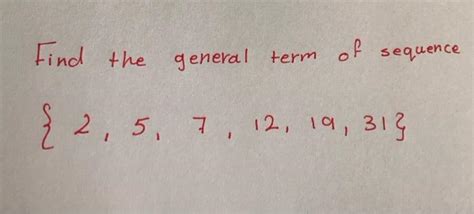 Find the general term of sequence
{ 2, 5, 7, 12, 19, 31}